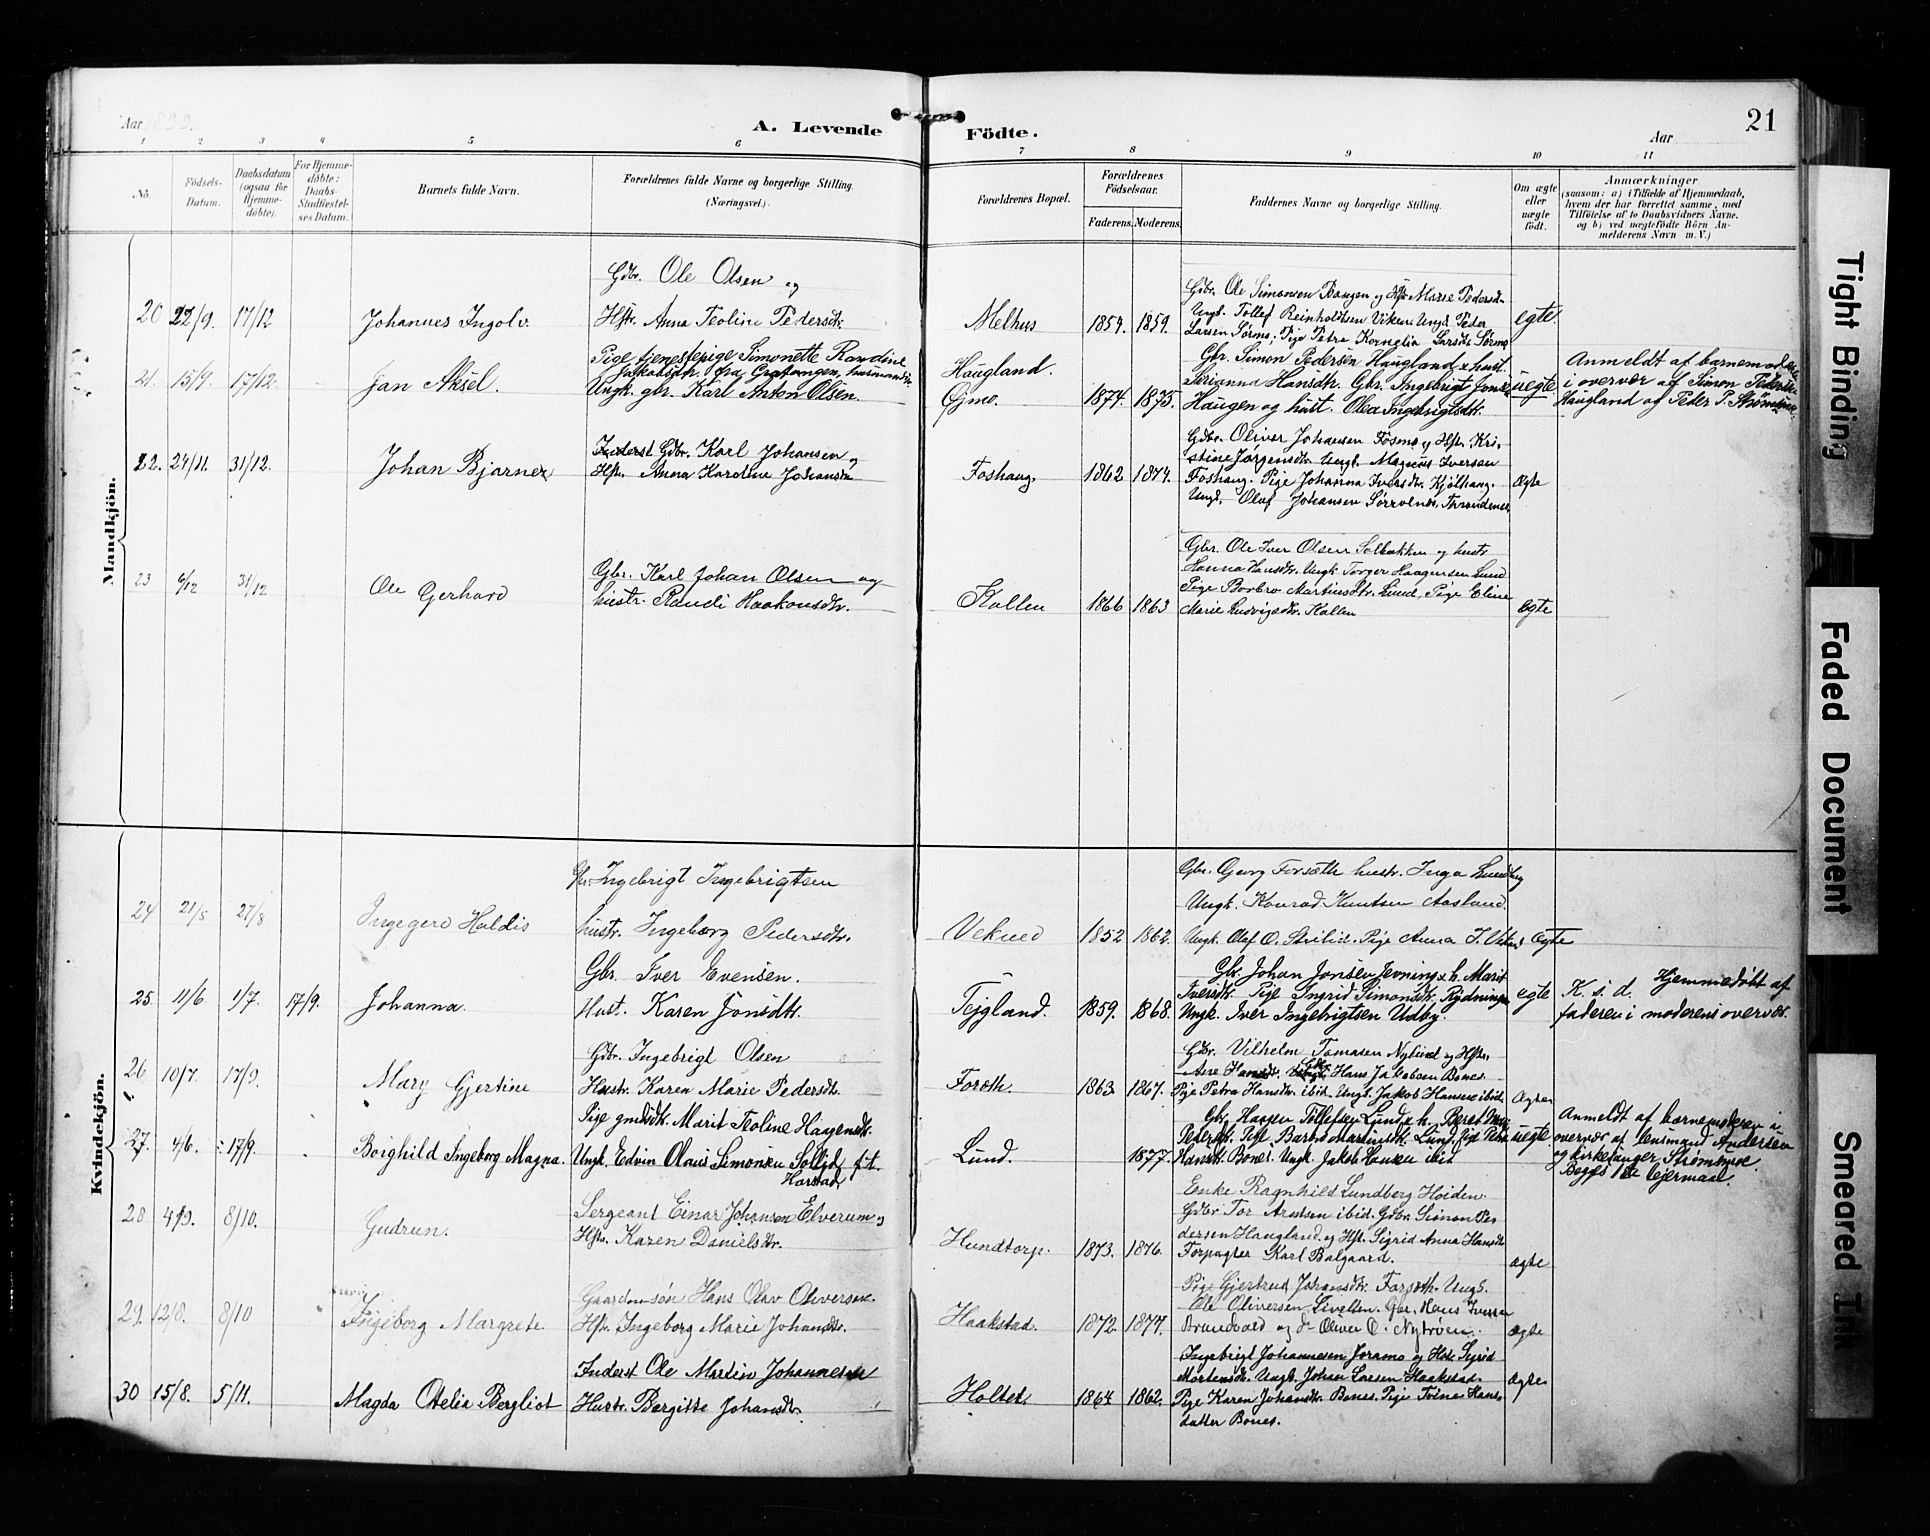 Aar 1899.
A. Levende Födte.
Aar
21
1 2 3 4 5 6 7 8 9 10 11
No.
Födsels-Datum.
Daabsdatum (ogsaa for Hjemme-döbte).
For Hjemme-döbte: Daabs-Stadfæstel-ses Datum.
Barnets fulde Navn.
Forældrenes fulde Navne og borgerlige Stilling. (Næringsvei.)
Forældrenes Bopæl.
Forældrenes Födselsaar.
Faderens. Moderens.
Faddernes Navne og borgerlige Stilling.
Om ægte eller uægte födt.
Anmærkninger
(saasom: a) i Tilfælde af Hjemmedaab,
hvem der har forrettet samme, med
Tilföielse af to Daabsvidners Navne.
og b) ved uægtefödte Börn An-
melderens Navn m. V.)
Mandkjön.
20 22/9. 17/12
Johannes Ingolv.
Gdbr. Ole Olsen og
Hstr. Anna Teoline Pedersdtr.
Melhus 1854. 1859.
Gdbr. Ole Simonsen Baugen og Hstr Marie Pedersdtr.
Ungk. Tollef Reinholdtsen Viken Ungk. Peder
Larsen Sørmo, Pige Petra Kornelia Larsdtr. Sørmo
egte.
21. 15/9. 17/12.
Jan Aksel.
Pige tjenestepige Simonette Randine
Jakobsdtr. fra Gratangen, husmandsdtr
Ungk. gbr. Karl Anton Olsen.
Haugland.
Øjmo. 1874. 1875.
Gbr. Simon Pedersen Haugland & hust.
Serianna Hansdtr. Gbr. Ingebrigt Jonsen
Haugen og hust. Olea Ingebrigtsdtr.
uegte
Anmeldt af barnemoderen
i overvær af Simon Pedersen
Haugland og Peder P. Strømsmoe
22. 24/11. 31/12.
Johan Bjarne
Inderst Gdbr. Karl Johansen og
Hstr. Anna Karoline Johansdtr
Foshaug. 1862 1874.
Gdbr. Oliver Johansen Fosmo og Hstr. Kri-
stine Jørgensdtr. Ungk. Magnus Iversen
Foshaug. Pige Johanna Iversdtr. Kjølhaug.
Ungk. Olaf Johansen Sørvolnes, Trondenes
Ægte
23 9/12 31/12
Ole Gerhard
Gbr. Karl Johan Olsen og
hustr. Randi Haakonsdtr.
Kollen 1866 1863
Gbr. Ole Iver Olsen Solbakken og hustr
Hanna Hansdtr. Ungk Torger Haagensen Lund
Pige Borbro Martinsdtr. Lund, Pige Eline
Marie Ludvigsdtr. Kollen
Ægte
Kvindekjön.
24 21/5 27/8
Ingegerd Haldis
Gbr. Ingebrigt Ingebrigtsen
hustr. Ingeborg Pedersdtr.
Veknes 1852 1862.
Gbr. Georg Forsæth hustr. Inga Lundberg
Ungk. Konrad Knutsen Aasland.
Ungk. Olaf O. Pige Anna J.
Ægte
25. 11/6. 1/7. 17/9.
Johanna.
Gbr. Iver Evensen.
Hust. Karen Jonsdtr.
Tejgland. 1859. 1868.
Gbr. Johan Jonsen Jevning & h. Marit
Iversdtr. Pige Ingrid Simonsdtr. Rydningen
Ungk. Iver Ingebrigtsen Udby.
egte
K. s. d. Hjemmedøbt af
faderen i moderens overvær.
26 10/7. 17/9.
Mary Gjertine
Gdbr. Ingebrigt Olsen
Hustr. Karen Marie Pedersdtr.
Foræth. 1863 1867.
Gdbr. Vilhelm Tomasen Nylund og Hstr.
Ane Hansdtr. Gdbr Hans Jakobsen Bones.
Pige Petra Hansdtr. ibid. Ungk. Jakob Hansen ibid.
Ægte
27. 4/6. 17/9.
Borghild Ingeborg Magna.
Pige gmdsdtr. Marit Teoline Hagensdtr.
Ungk. Edvin Olaus Simonsen Sollid f.t.
Harstad
Lund. 1877
Gbr. Haagen Tollefsen Lund & h. Beret
Pedersdtr. Pige Barbro Martinsdtr. Lund. Pige Petra
Hansdtr. Bones. Ungk. Jakob Hansen ibid
uegte
Anmeldt af barnemoderen i
overvær af lensmand Andersen
og kirkesanger Strømsmoe.
Begges 1ste lejermaal.
28 4/9. 8/10.
Gudrun.
Sergeant Einar Johansen Elverum og
Hstr. Karen Danielsdtr.
Hundtorp. 1873. 1876.
Enke Ragnhild Lundberg Høiden.
Gdbr Tor Arntsen ibid. Gdbr. Simon Pe-
dersen Haugland og Hst. Sigrid Anna Hansdtr
Forpagter Karl Balgaard.
Ægte
29. 12/8. 8/10
Ingeborg Margrete
Gaardmsøn Hans Olav Oliversen.
Hstr. Ingeborg Marie Johansdtr.
Haakstad. 1872 1877.
Pige Gjertrud Johansdtr. Forseth. Ungk.
Ole Oliversen Livelten. Gbr. Hans Iversen
Brandvold og do Oliver O. Nybrøen.
Ægte
30 15/8. 5/11.
Magda Otelia Bergliot
Inderst Ole Martin Johannesen
Hustr. Bergitte Johansdtr.
Holtet. 1864 1862.
Ingebrigt Johannesen Joramo og Hst. Sigrid
Mortensdtr. Ungk. Johan Larsen Haakstad.
Pige Karen Johansdtr. Bones. Pige Trine Hans-
datter Bones.
Ægte
Tight Binding
Faded Document
Smeared Ink